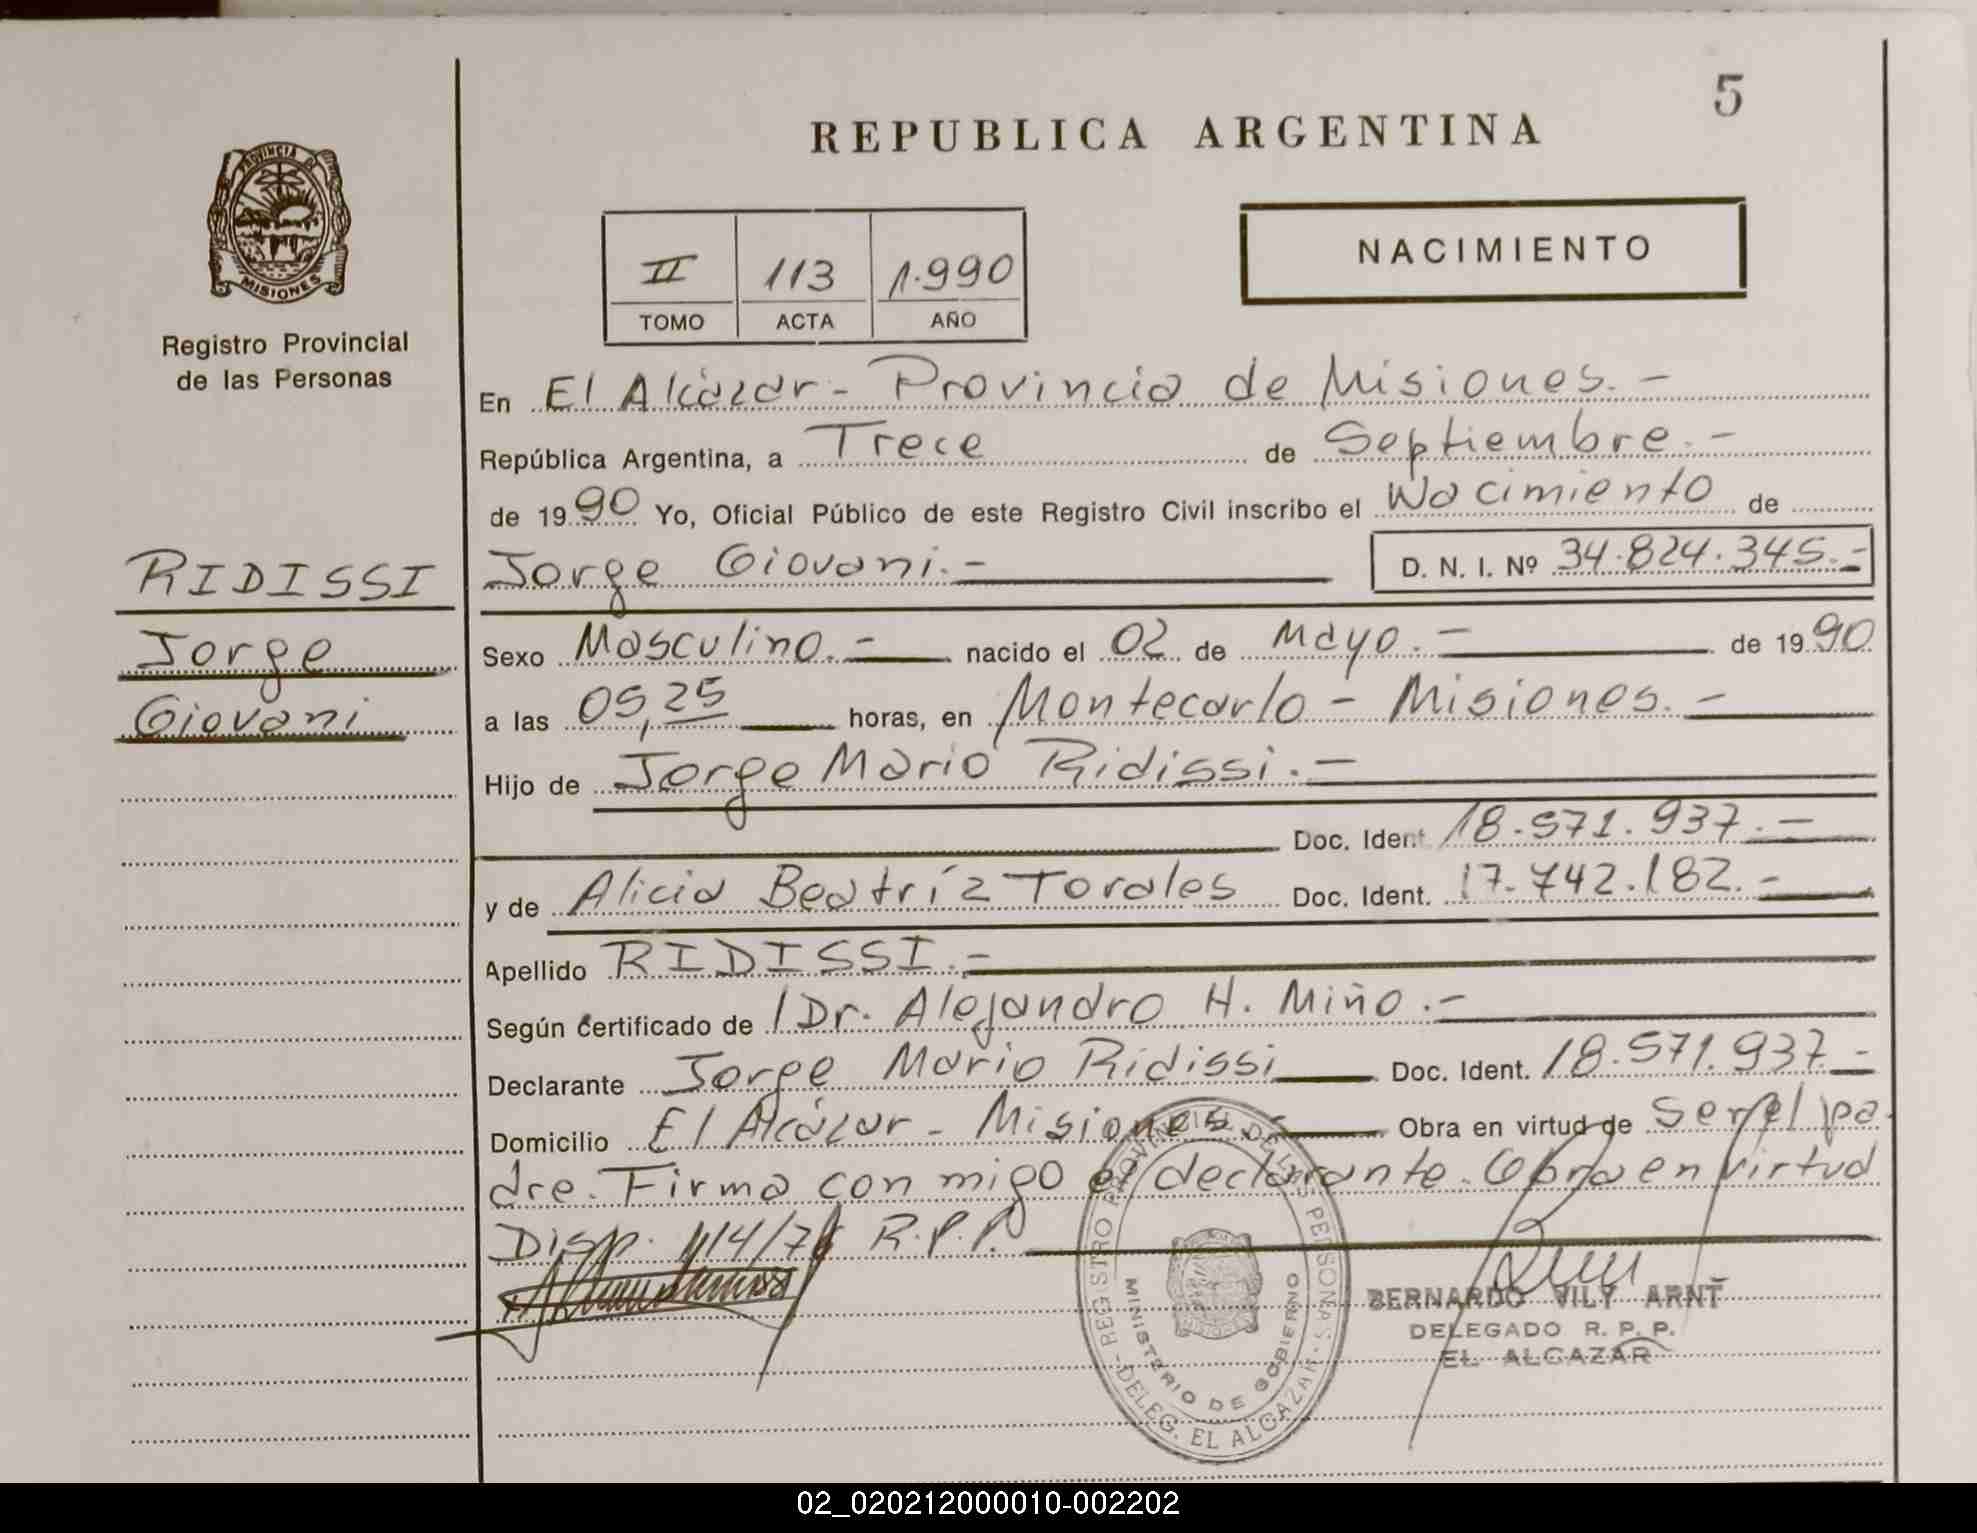 5
REPUBLICA ARGENTINA
PROVINCIA DE
MISIONES
Registro Provincial
de las Personas
II 113 1.990
TOMO ACTA AÑO
NACIMIENTO
En El Alcázar - Provincia de Misiones. -
República Argentina, a Trece de Septiembre. -
de 1990 Yo, Oficial Público de este Registro Civil inscribo el Nacimiento de
Jorge Giovani. - D. N. I. Nº 34.824.345. -
RIDISSI
Jorge
Giovani
Sexo Masculino. - nacido el 02 de Mayo. - de 1990
a las 05,25 horas, en Montecarlo - Misiones. -
Hijo de Jorge Mario Ridissi. -
Doc. Ident. 18.571.937. -
y de Alicia Beatríz Torales Doc. Ident. 17.742.182. -
Apellido RIDISSI. -
Según certificado de / Dr. Alejandro H. Miño. -
Declarante Jorge Mario Ridissi Doc. Ident. 18.571.937. -
Domicilio El Alcázar - Misiones. - Obra en virtud de ser el pa-
dre. Firma conmigo el declarante. Obra en virtud
Disp. 114/76 R.P.P.
REGISTRO PROVINCIAL DE LAS PERSONAS - DELEG. EL ALCAZAR -
MINISTERIO DE GOBIERNO
BERNARDO VILY ARNT
DELEGADO R. P. P.
EL ALCAZAR
02_020212000010-002202